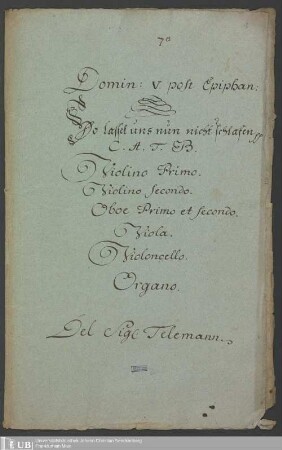 7a
Domin: V post Epiphan:
So lasset uns nun nicht schlafen
C. A. T. B.
Violino Primo.
Violino Secondo.
Oboe Primo et Secondo.
Viola.
Violoncello.
Organo.
Del Sigl Telemann.
UB
Universitätsbibliothek Johann Christian Senckenberg
Frankfurt am Main